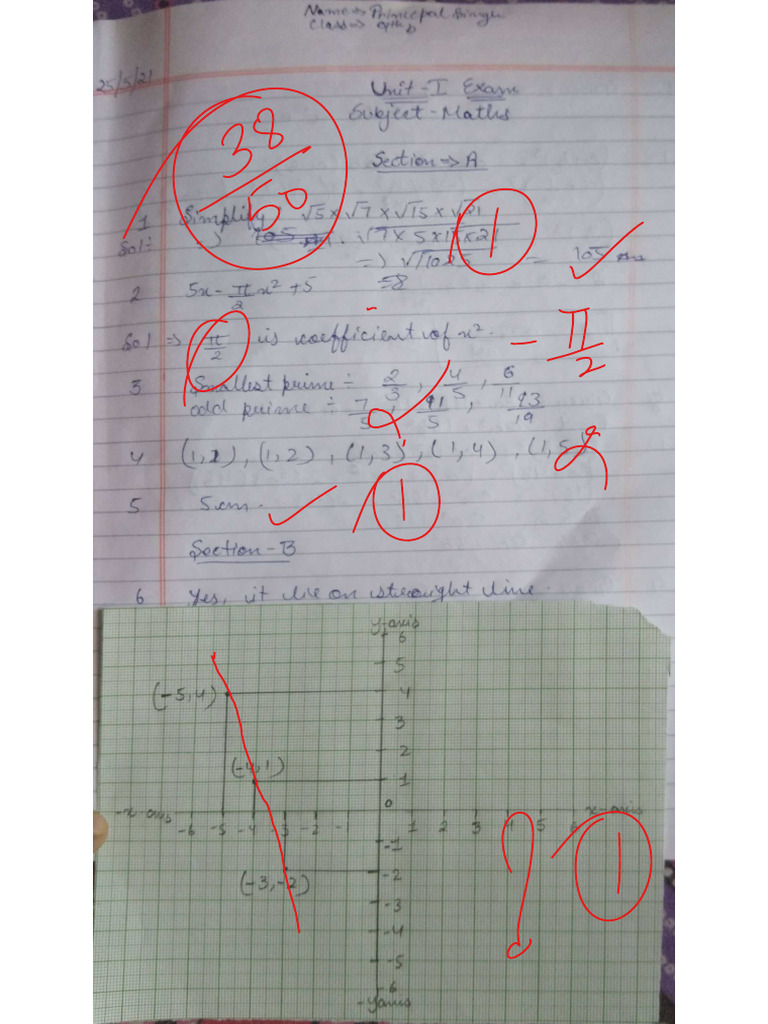 Name => Princepal Singh
Class => 9th b
25/5/21
Unit-I Exam
Subject-Maths
38/60
Section => A
1 Simplify √5 × √7 × √15 × √21
Sol:- => √7×5×15×21
=> √11025 = 105 ans
1
2 5x - π/2 x² + 5 =8
Sol => π/2 is coefficient of x². - π/2
3 Smallest prime ÷ 2/3, 4/5, 6/11
odd prime ÷ 7/5, 11/5, 13/19
4 (1,1), (1,2), (1,3), (1,4), (1,5)
5 5cm.
1
Section-B
6 Yes, it lie on straight line.
y-axis
6
5
(-5,4) 4
3
2
(-4,1) 1
-x-axis 0 x-axis
-6 -5 -4 -3 -2 -1 1 2 3 4 5 6
-1
(-3,-2) -2
1
-3
-4
-5
-6
-y-axis